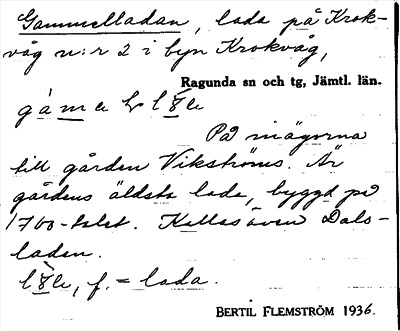 Gammelladan, lada på Krok-
våg n:r 2 i byn Krokvåg,
Ragunda sn och tg, Jämtl. län.
På mägorna
till gården Vikströms. Är
gårdens äldsta lada, byggd på
1700-talet. Kallas även Dals-
ladan.
f. = lada.
BERTIL FLEMSTRÖM 1936.